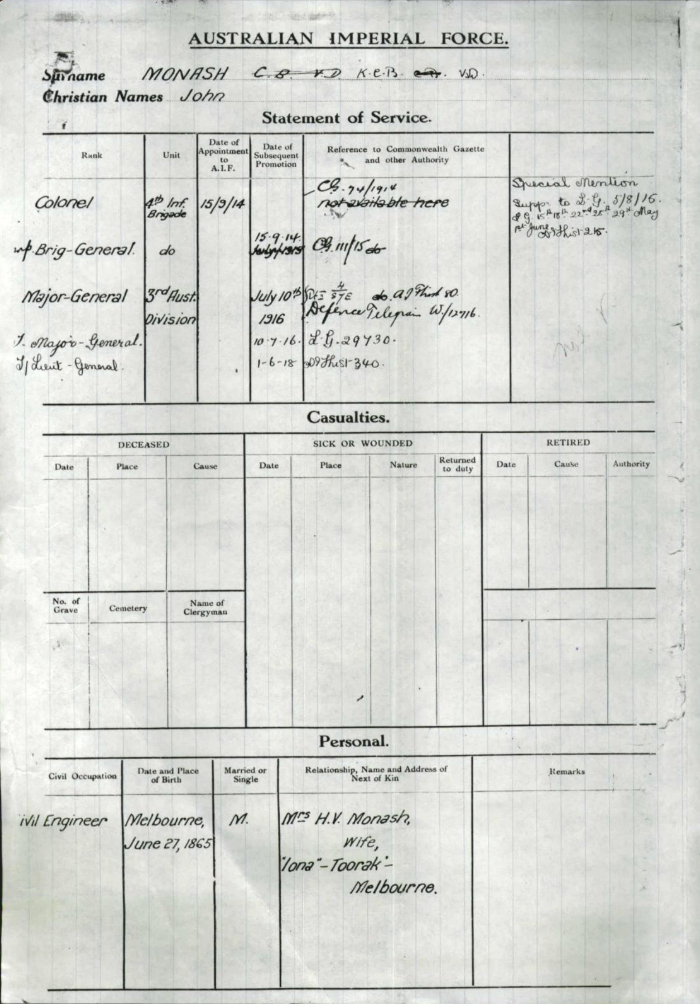 AUSTRALIAN IMPERIAL FORCE.
Surname MONASH C.B. V.D. K.C.B. V.D.
Christian Names John
Statement of Service.
Rank
Unit
Date of Appointment to A.I.F.
Date of Subsequent Promotion.
Reference to Commonwealth Gazette and other Authority
Colonel 4th Inf. Brigade 15/9/14 CG. 74/1914
not available here
Special Mention
Suppr to L.G. 5/8/15.
15th 18th 22nd 25th 29th May
1st June
Brig-General. do 15.9.14 July 1915 CG 111/15 do
Major-General 3rd Aust. Division July 10th 1916 do.
Defence Telegram W/12716.
T. Major-General. 10.7.16. L.G. 29730.
T/Lieut-General. 1-6-18 340.
Casualties.
DECEASED
SICK OR WOUNDED
RETIRED
Date Place Cause
Date Place Nature Returned to duty
Date Cause Authority
No. of Grave
Cemetery
Name of Clergyman
Personal.
Civil Occupation
Date and Place of Birth
Married or Single
Relationship, Name and Address of Next of Kin
Remarks
ivil Engineer Melbourne, M. Mrs H.V. Monash,
June 27, 1865 Wife,
"Iona"-Toorak"-
Melbourne.